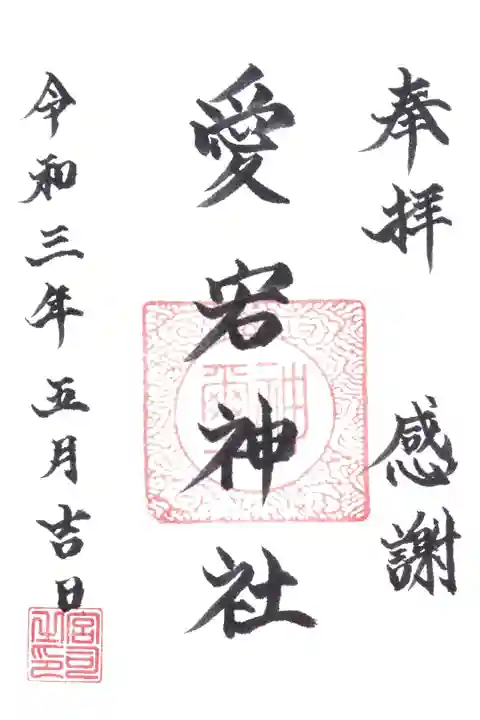 奉拝 感謝
愛宕神社
令和三年五月吉日
宮司之印